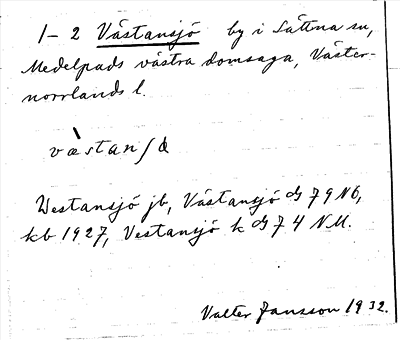 1-2 Västansjö by i Sättna sn,
Medelpads västra domsaga, Väster-
norrlands l.
Westansjö jb, Västansjö GJ 79 NB,
kb 1927, Vestansjö k GJ 74 NM.
Valter Jansson 1932.